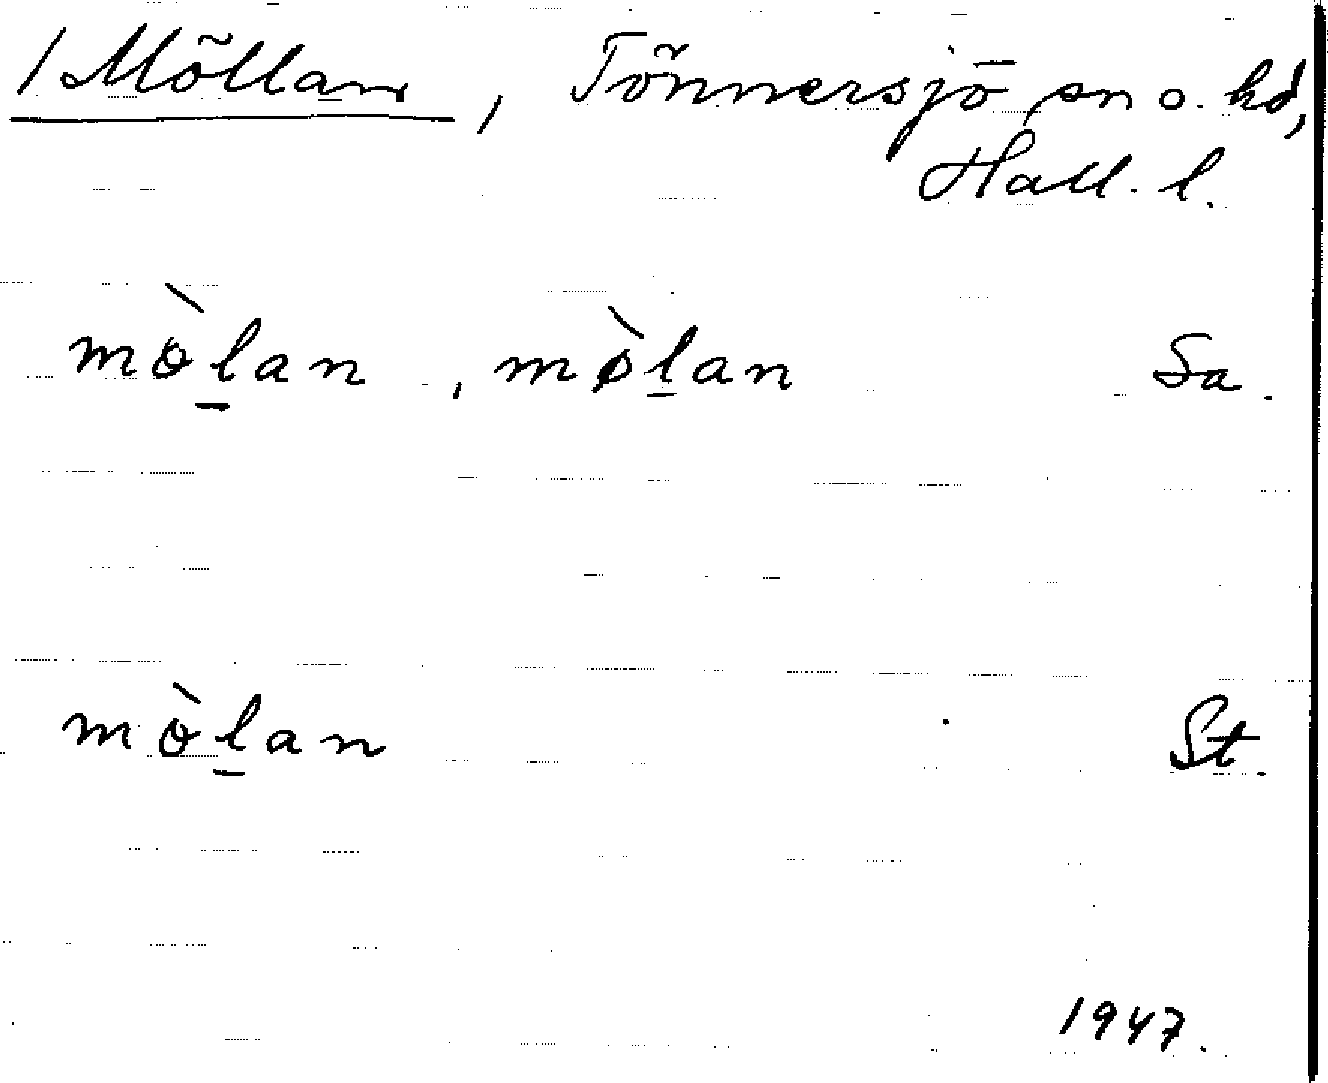 /Möllan, Tönnersjö sn o. hd,
Hall. l.
mò̀l̲an, mø̀l̲an Sa.
mò̀l̲an St.
1947.